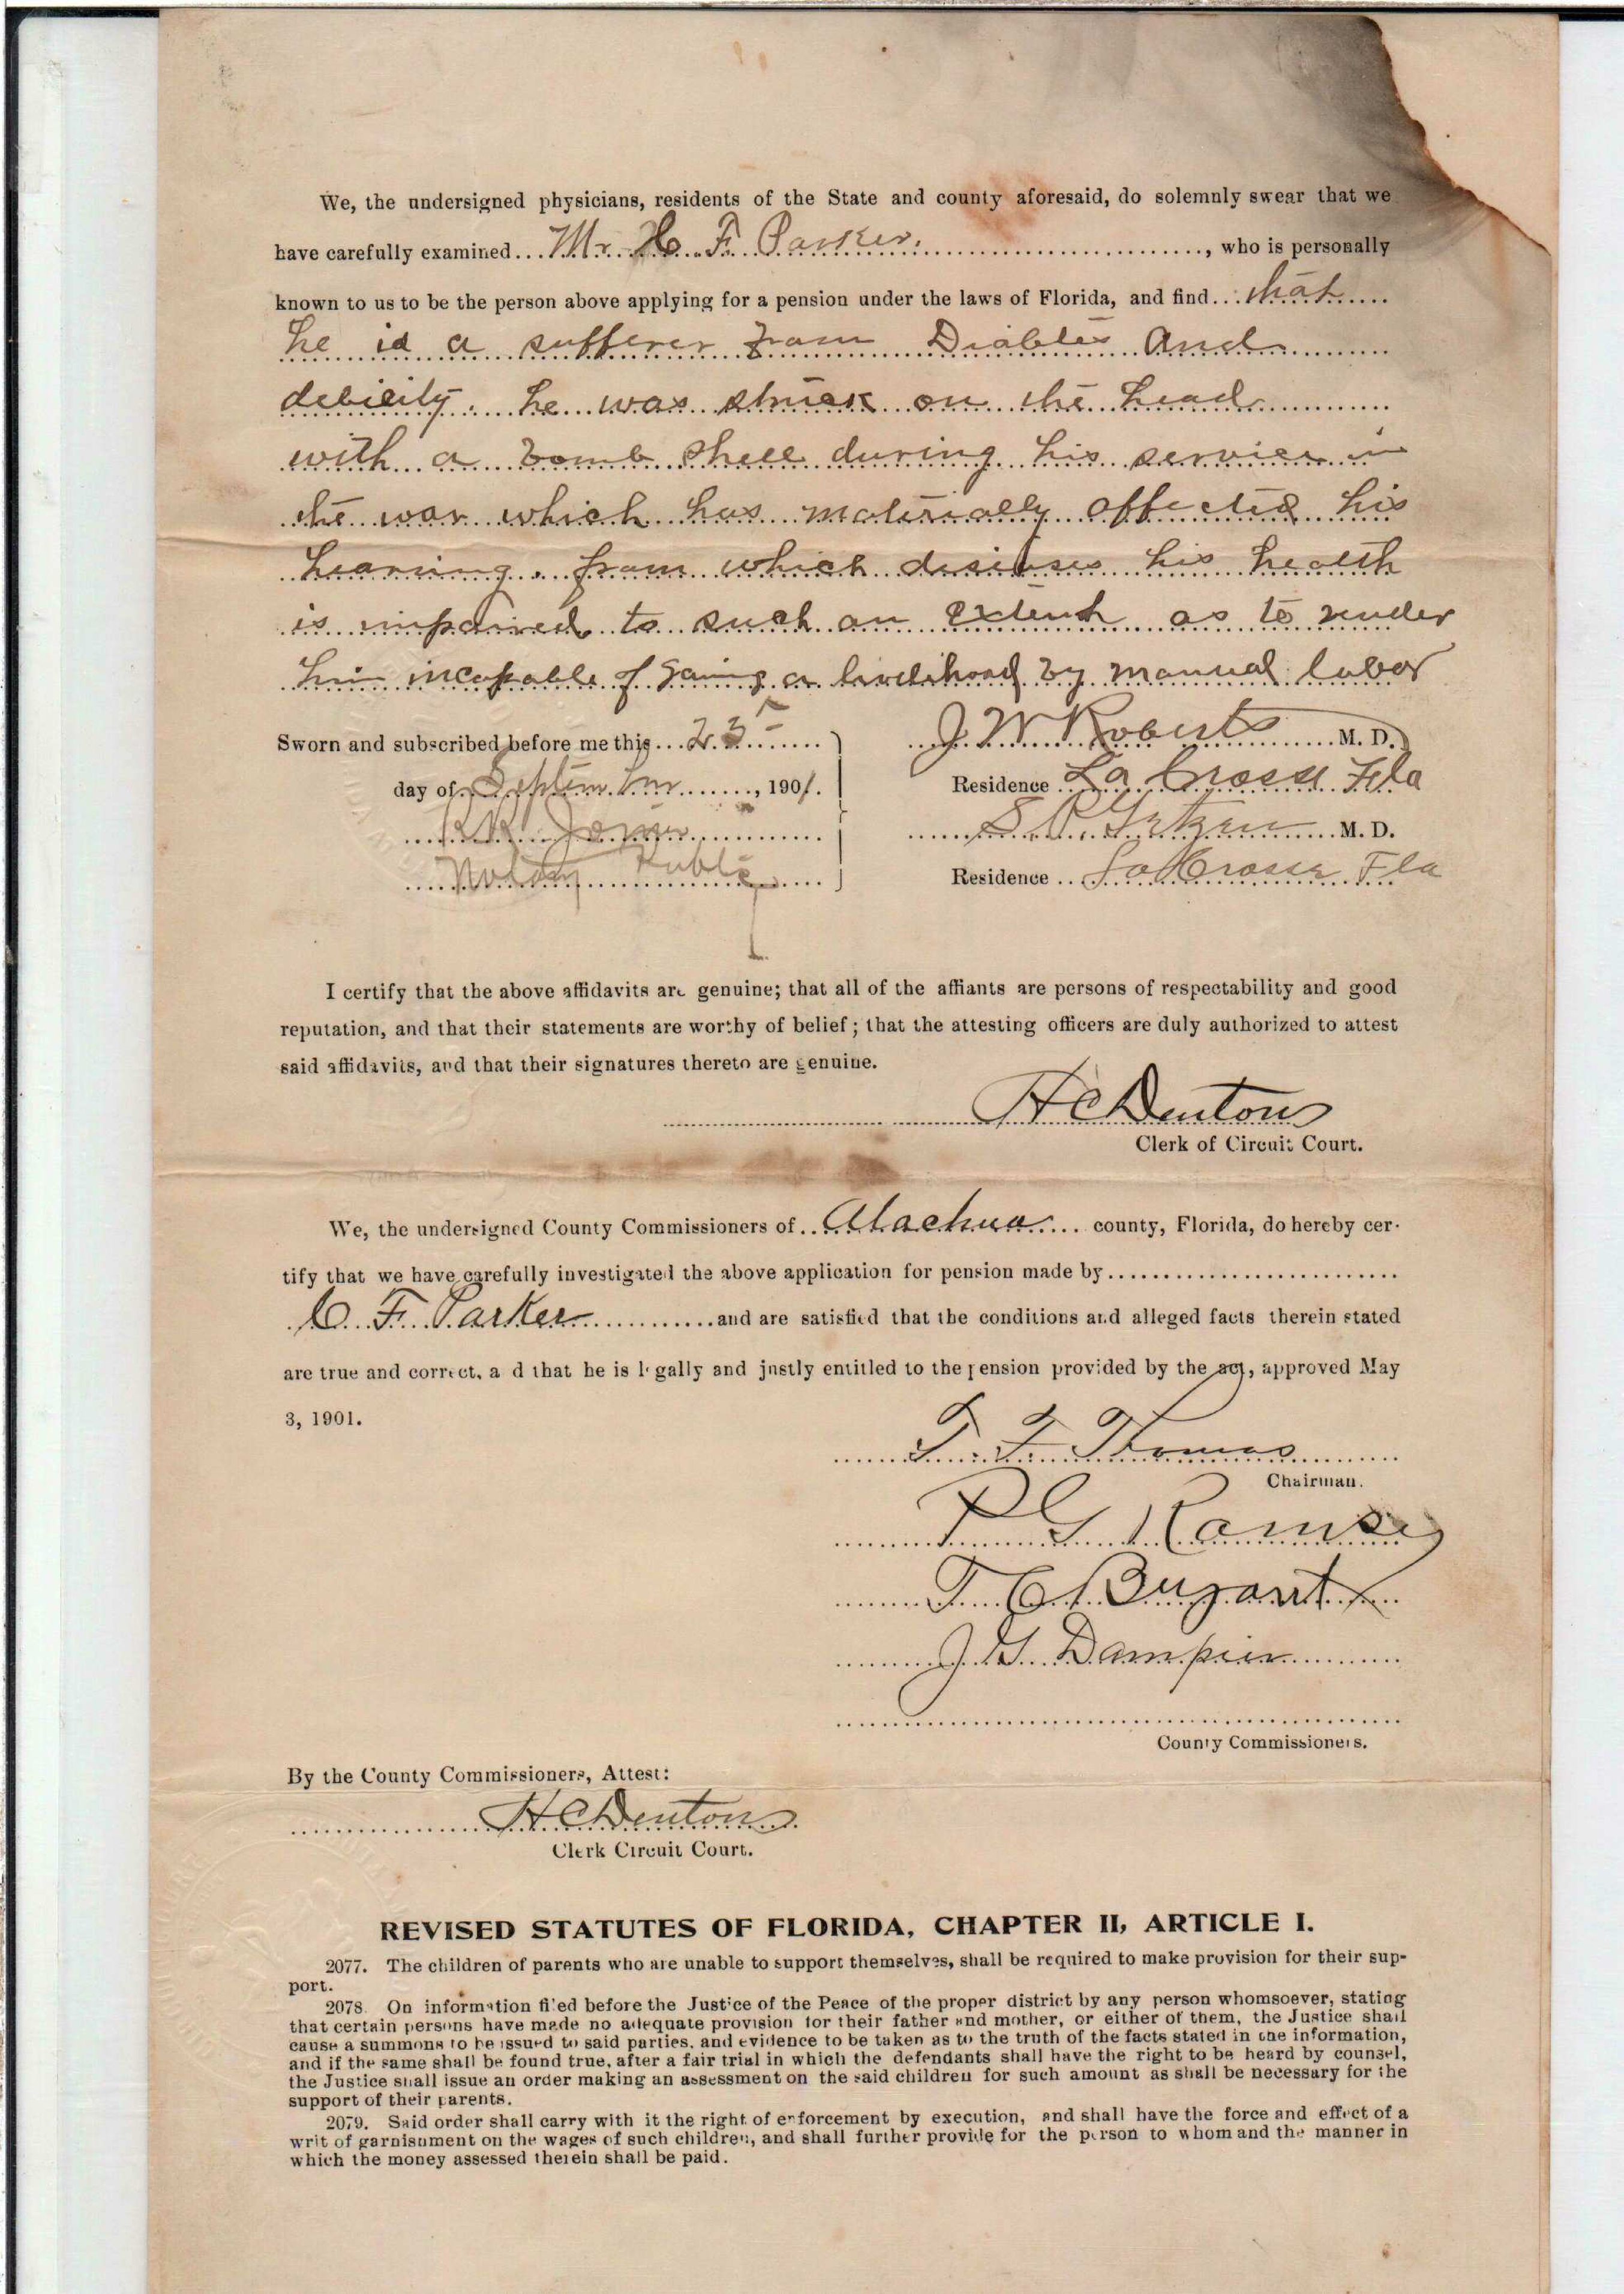 We, the undersigned physicians, residents of the State and county aforesaid, do solemnly swear that we
have carefully examined... Mr. C. F. Parker. ..., who is personally
known to us to be the person above applying for a pension under the laws of Florida, and find... that
he is a sufferer from Diabetes and
debility. he was struck on the head
with a bomb shell during his service in
the war which has materially affected his
hearing. from which diseases his health
is impaired to such an extent as to render
him incapable of gaing a livelihood by manual labor
Sworn and subscribed before me this... 23
J. W. Roberts M. D.
day of September, 1901.
Residence La Crosse Fla
M. D.
Notary Public
Residence La Crosse Fla
I certify that the above affidavits are genuine; that all of the affiants are persons of respectability and good
reputation, and that their statements are worthy of belief; that the attesting officers are duly authorized to attest
said affidavits, and that their signatures thereto are genuine.
H C Denton
Clerk of Circuit Court.
We, the undersigned County Commissioners of.. Alachua ... county, Florida, do hereby cer-
tify that we have carefully investigated the above application for pension made by
C. F. Parker and are satisfied that the conditions and alleged facts therein stated
are true and correct, a d that he is legally and justly entitled to the pension provided by the act, approved May
3, 1901.
T. F. Thomas
Chairman.
P G Ramsey
T. C. Bryant
J. G. Dampier
County Commissioners.
By the County Commissioners, Attest:
H C Denton
Clerk Circuit Court.
REVISED STATUTES OF FLORIDA, CHAPTER II, ARTICLE I.
2077. The children of parents who are unable to support themselves, shall be required to make provision for their sup-
port.
2078. On information filed before the Justice of the Peace of the proper district by any person whomsoever, stating
that certain persons have made no adequate provision for their father and mother, or either of them, the Justice shall
cause a summons to be issued to said parties, and evidence to be taken as to the truth of the facts stated in the information,
and if the same shall be found true, after a fair trial in which the defendants shall have the right to be heard by counsel,
the Justice shall issue an order making an assessment on the said children for such amount as shall be necessary for the
support of their parents.
2079. Said order shall carry with it the right of enforcement by execution, and shall have the force and effect of a
writ of garnishment on the wages of such children, and shall further provide for the person to whom and the manner in
which the money assessed therein shall be paid.